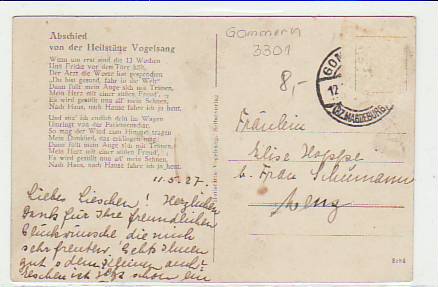 Abschied
von der Heilstätte Vogelsang
Wenn um erst sind die 13 Wochen
Und Fricke vor dem Tore hält,
Der Arzt die Worte hat gesprochen
Du bist gesund, fahr in die Welt!
Dann füllt mein Auge sich mit Tränen,
Mein Herz mit einer stillen Freud',
Es wird gestillt nun all' mein Sehnen,
Nach Haus, nach Hause fahre ich ja heut.
Und sitz' ich endlich dein im Wagen
So mag der Wind zum Himmel tragen
Mein Danklied, das
Dann füllt mein Auge sich mit Tränen,
Mein Herz mit einer stillen Freud',
Es wird gestillt nun all' mein Sehnen,
Nach Haus, nach Hause fahre ich ja heut.
Gommern
3301
8,-
GOM
12
(BZ. MAGDEBURG)
11.5.27
Liebes Lieschen! Herzlichen
Dank für Ihre freundlichen
Glückwünsche die mich
sehr freuten. Geht's Ihnen
gut
Fräulein
Elise Hoppe
b. Frau Schumann